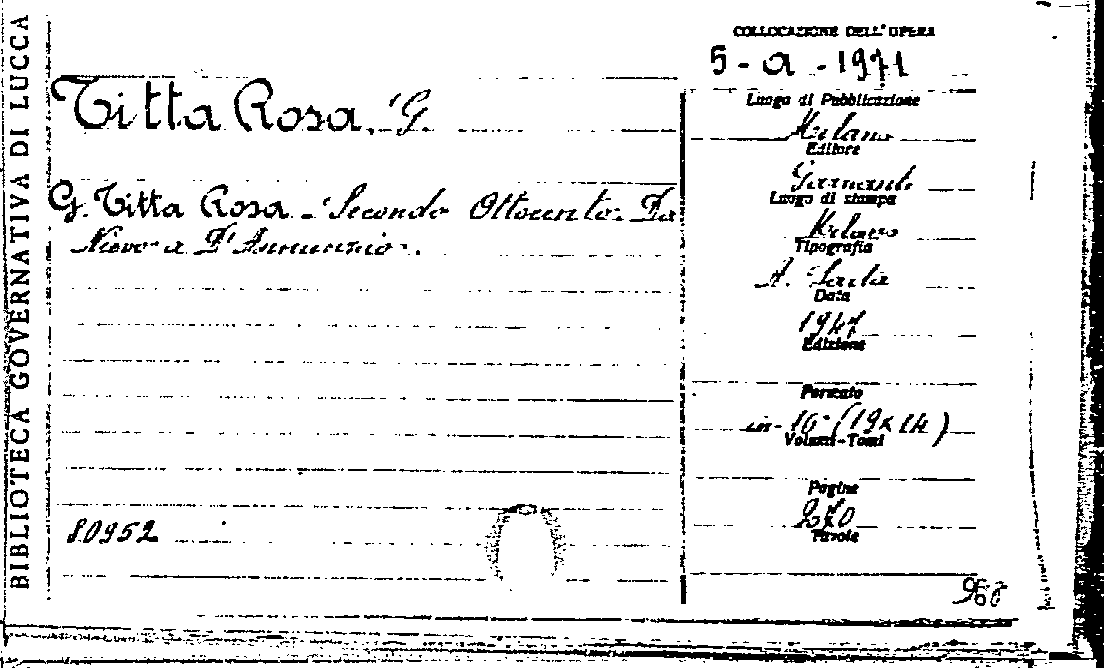 BIBLIOTECA GOVERNATIVA DI LUCCA
COLLOCAZIONE DELL'OPERA
5 - a - 1971
Titta Rosa, G.
Luogo di Pubblicazione
Milano
Editore
Garzanti
G. Titta Rosa - Secondo Ottocento. Da
Nievo a D'Annunzio.
Luogo di stampa
Milano
Tipografia
A. Saita
Data
1947
Edizione
Formato
in-16° (19x14)
Volumi-Tomi
Pagine
270
Tavole
80952
968